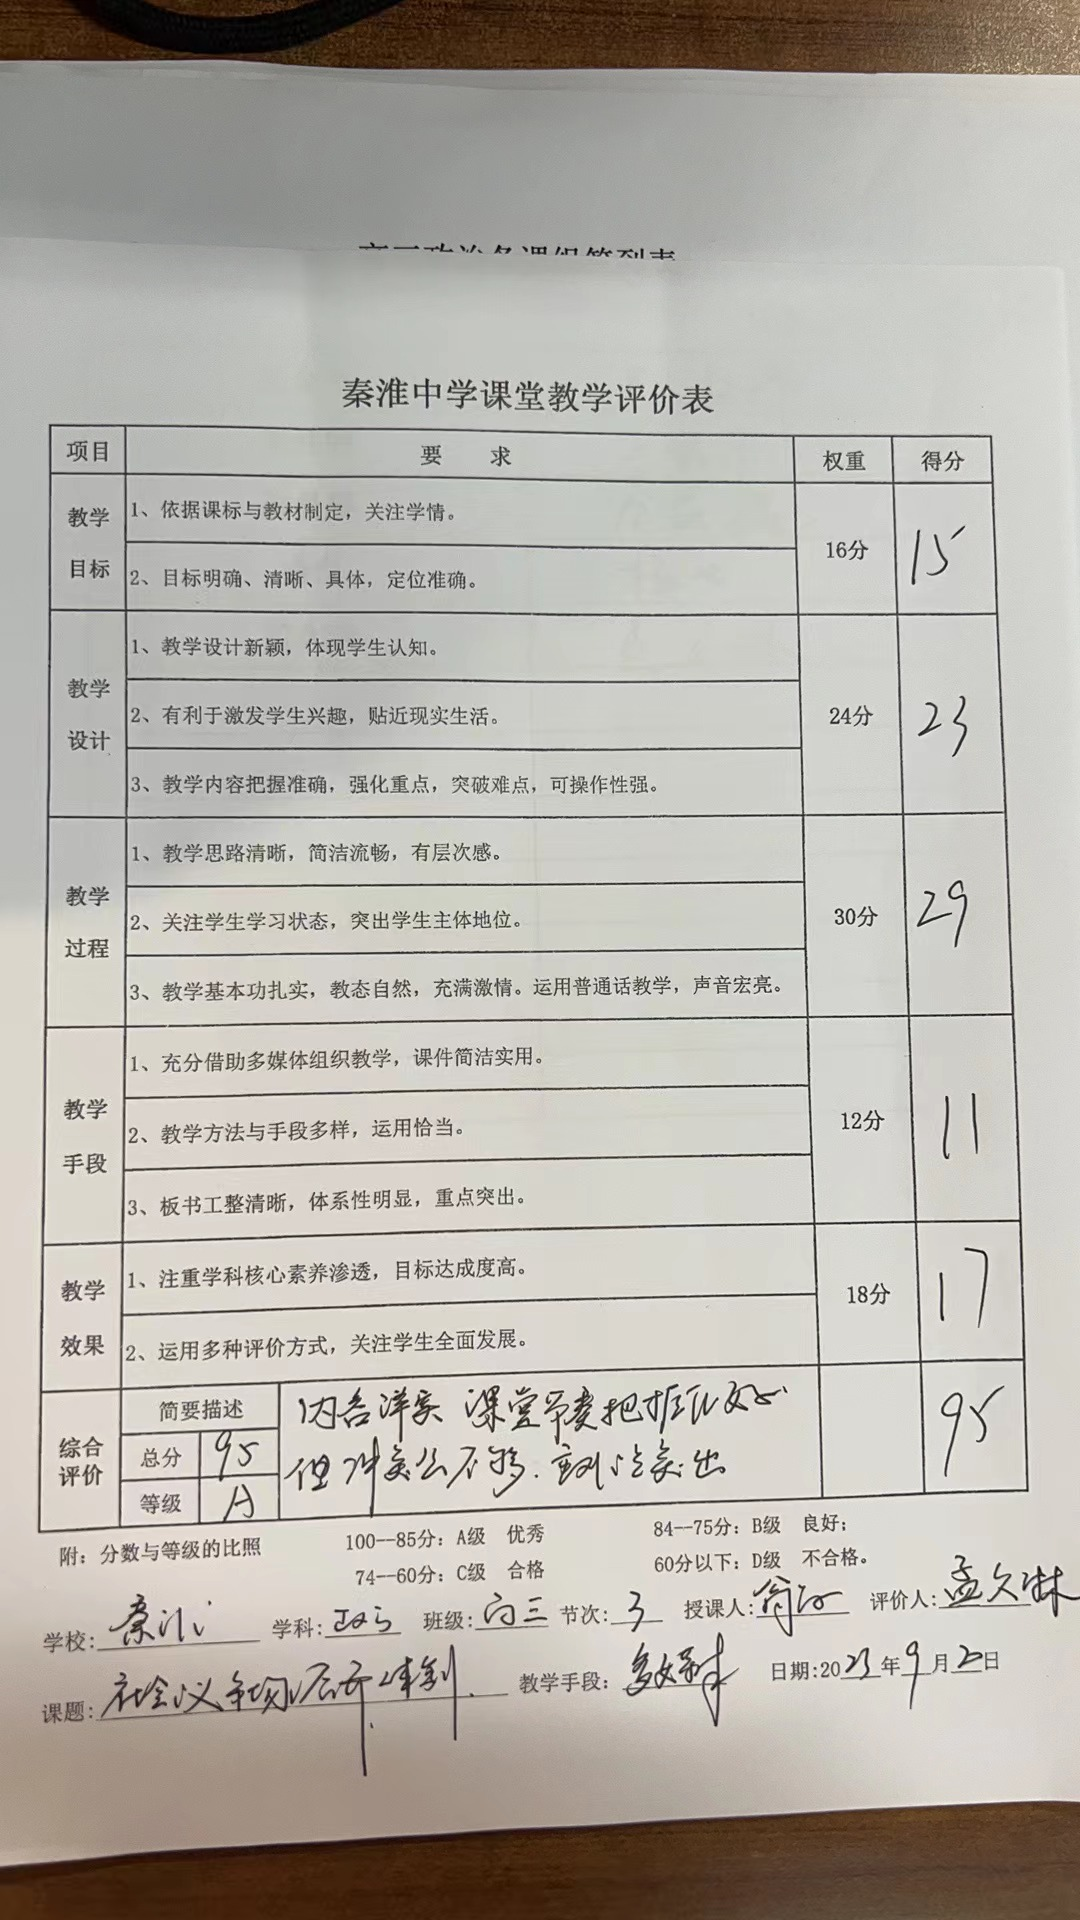 秦淮中学课堂教学评价表
项目 要 求 权重 得分
教学目标
1、依据课标与教材制定，关注学情。
2、目标明确、清晰、具体，定位准确。
16分 15
教学设计
1、教学设计新颖，体现学生认知。
2、有利于激发学生兴趣，贴近现实生活。
3、教学内容把握准确，强化重点，突破难点，可操作性强。
24分 23
教学过程
1、教学思路清晰，简洁流畅，有层次感。
2、关注学生学习状态，突出学生主体地位。
3、教学基本功扎实，教态自然，充满激情。运用普通话教学，声音宏亮。
30分 29
教学手段
1、充分借助多媒体组织教学，课件简洁实用。
2、教学方法与手段多样，运用恰当。
3、板书工整清晰，体系性明显，重点突出。
12分 11
教学效果
1、注重学科核心素养渗透，目标达成度高。
2、运用多种评价方式，关注学生全面发展。
18分 17
综合评价
简要描述
总分 95
等级 A
内容详实 课堂节奏把握比较好
但 不够 突出
95
附：分数与等级的比照 100--85分：A级 优秀 84--75分：B级 良好；
74--60分：C级 合格 60分以下：D级 不合格。
学校：秦淮 学科：政治 班级：高三 节次：3 授课人：翁 评价人：孟久琳
课题：社会主义市场经济体制 教学手段：多媒体 日期：2023年9月20日